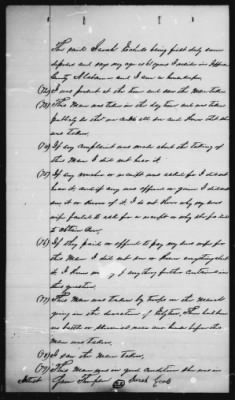 The said Sarah Eccles being first duly sworn
deposes and says my age is 60 years I reside in Jefferson
County Alabama and I am a housekeeper
(72) I was present at the time and saw the mare taken
(73) This Mare was taken in the day time and was taken
publicly so that we could all see and know that she
was taken.
(74) If any complaint was made about the taking of
this Mare I did not hear it
(75) If any voucher or receipt was asked for I did not
hear it, and if any was offered or given I did not
see it or know of it. I do not know why any
failed to ask for a receipt or why she failed
to obtain one,
(76) If they paid or offered to pay any one for
this Mare I did not see or know anything about
it I know anything further contained in
this question,
(77) This Mare was taken by troops on the March
going in the direction of There had been
no battle or skirmish near our house before this
mare was taken,
(78) I saw the Mare taken,
(79) This Mare was in good condition she was in
Attest